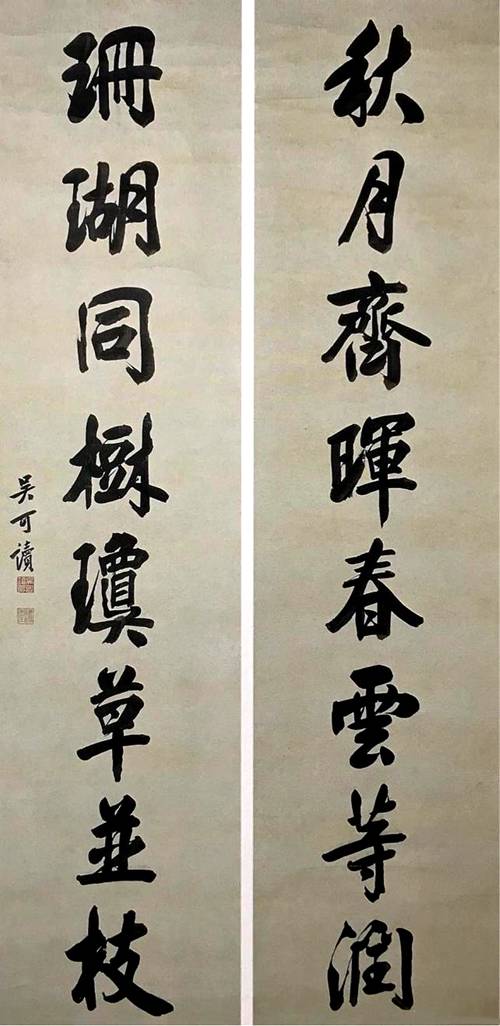 秋月齊暉春雲等潤
珊瑚同樹瓊草並枝
吳可讀